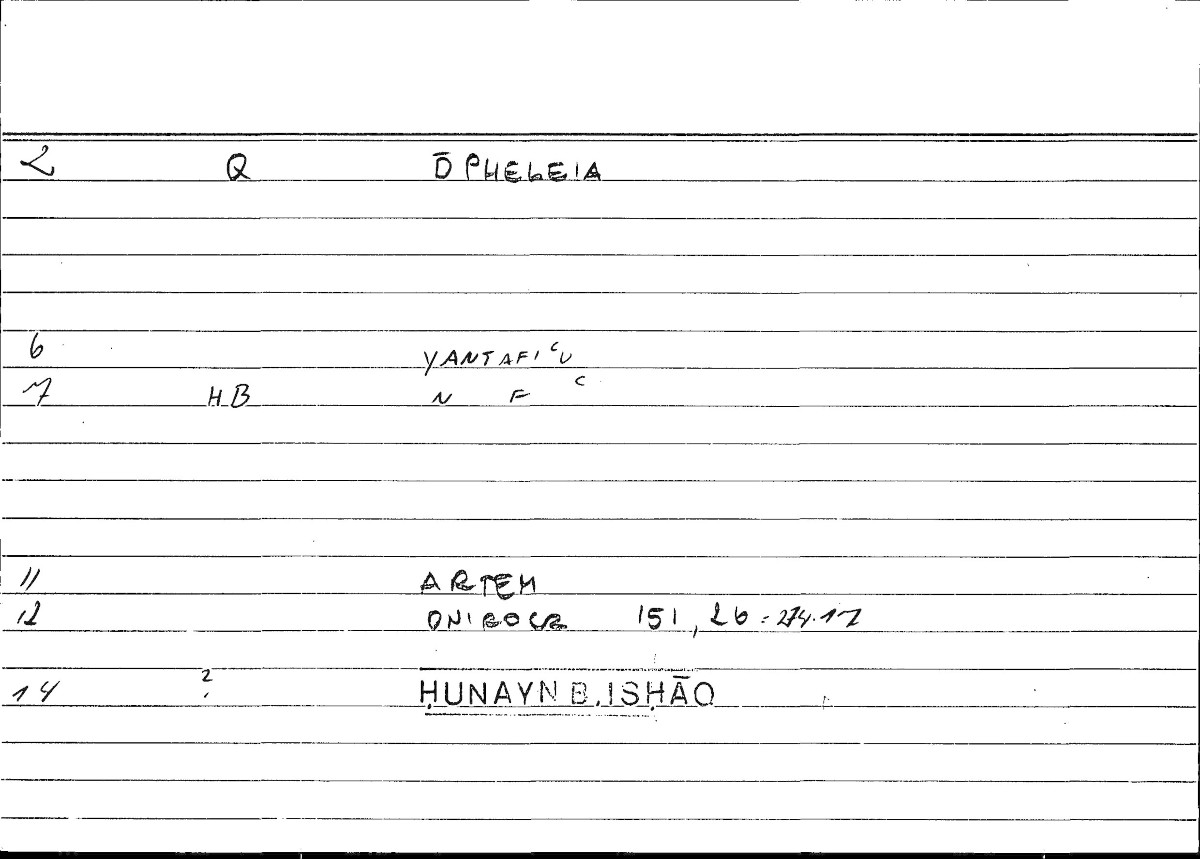 2 Q ŌPHELEIA
6 YANTAFIʿU
7 HB N F ʿ
11 ARTEM
12 ONIROCR 151, 26 = 274.17
14 ? ḤUNAYN B. ISḤĀQ